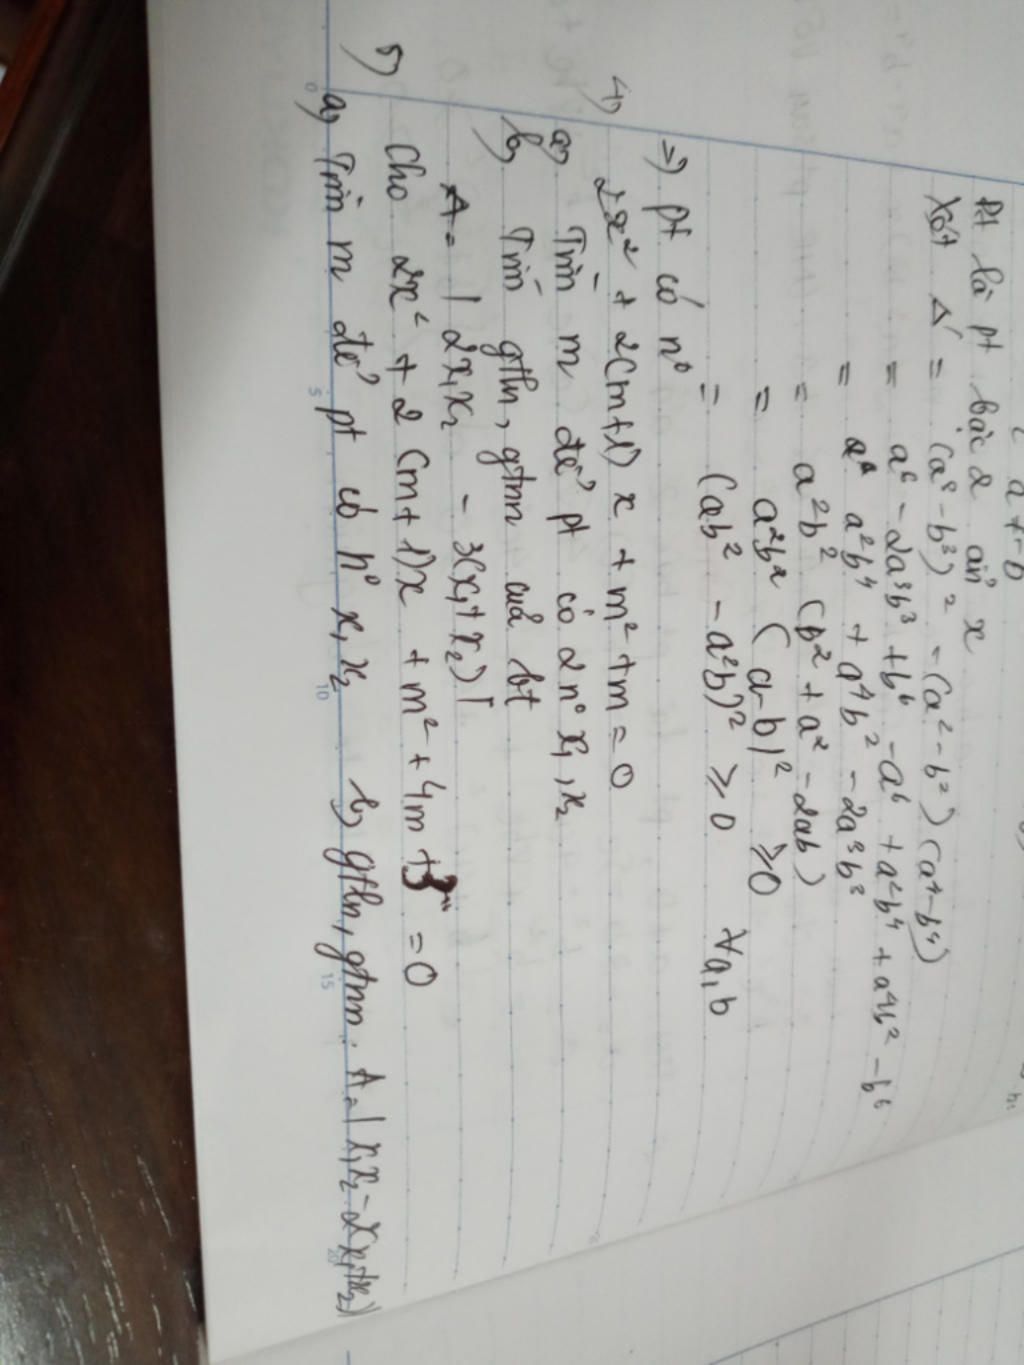 a + b
Pt là pt bậc 2 ẩn x
Xét Δ' = (a³ - b³)² - (a² - b²)(a⁴ - b⁴)
= a⁶ - 2a³b³ + b⁶ - a⁶ + a²b⁴ + a⁴b² - b⁶
= a²b⁴ + a⁴b² - 2a³b³
= a²b² (b² + a² - 2ab)
= a²b² (a - b)² ≥ 0
= (ab² - a²b)² ≥ 0 ∀a, b
=> pt có n⁰
4) 2x² + 2(m+1)x + m² + m = 0
a) Tìm m để pt có 2 n⁰ x₁, x₂
b) Tìm gtln, gtnn của bt
A = | 2x₁x₂ - 3(x₁ + x₂) |
5) Cho 2x² + 2(m+1)x + m² + 4m + 3 = 0
a) Tìm m để pt có n⁰ x₁, x₂ b) gtln, gtnn. A = | x₁x₂ - 2(x₁+x₂) |
0 5 10 15 20